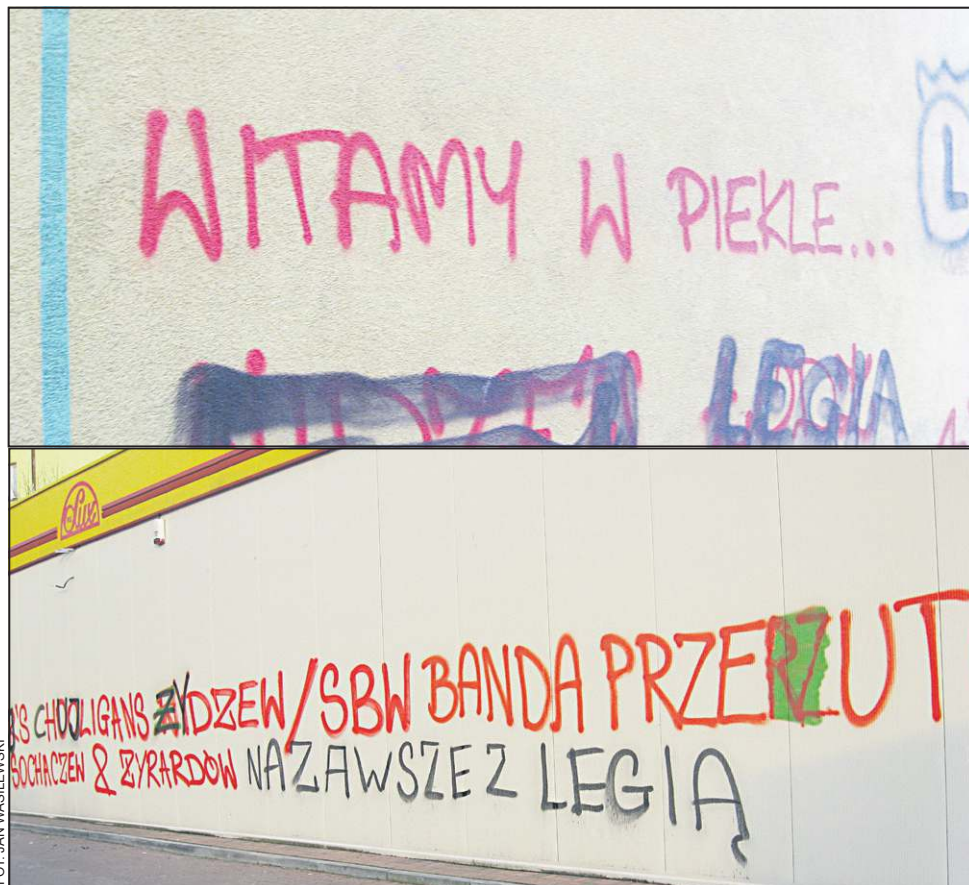 WITAMY W PIEKLE...
L
LEGIA
Lux
'S CHOOLIGANS ŻYDZEW/SBW BANDA PRZERZUT
SOCHACZEW & ŻYRARDÓW NAZAWSZE Z LEGIĄ
FOT. JAN WASILEWSKI